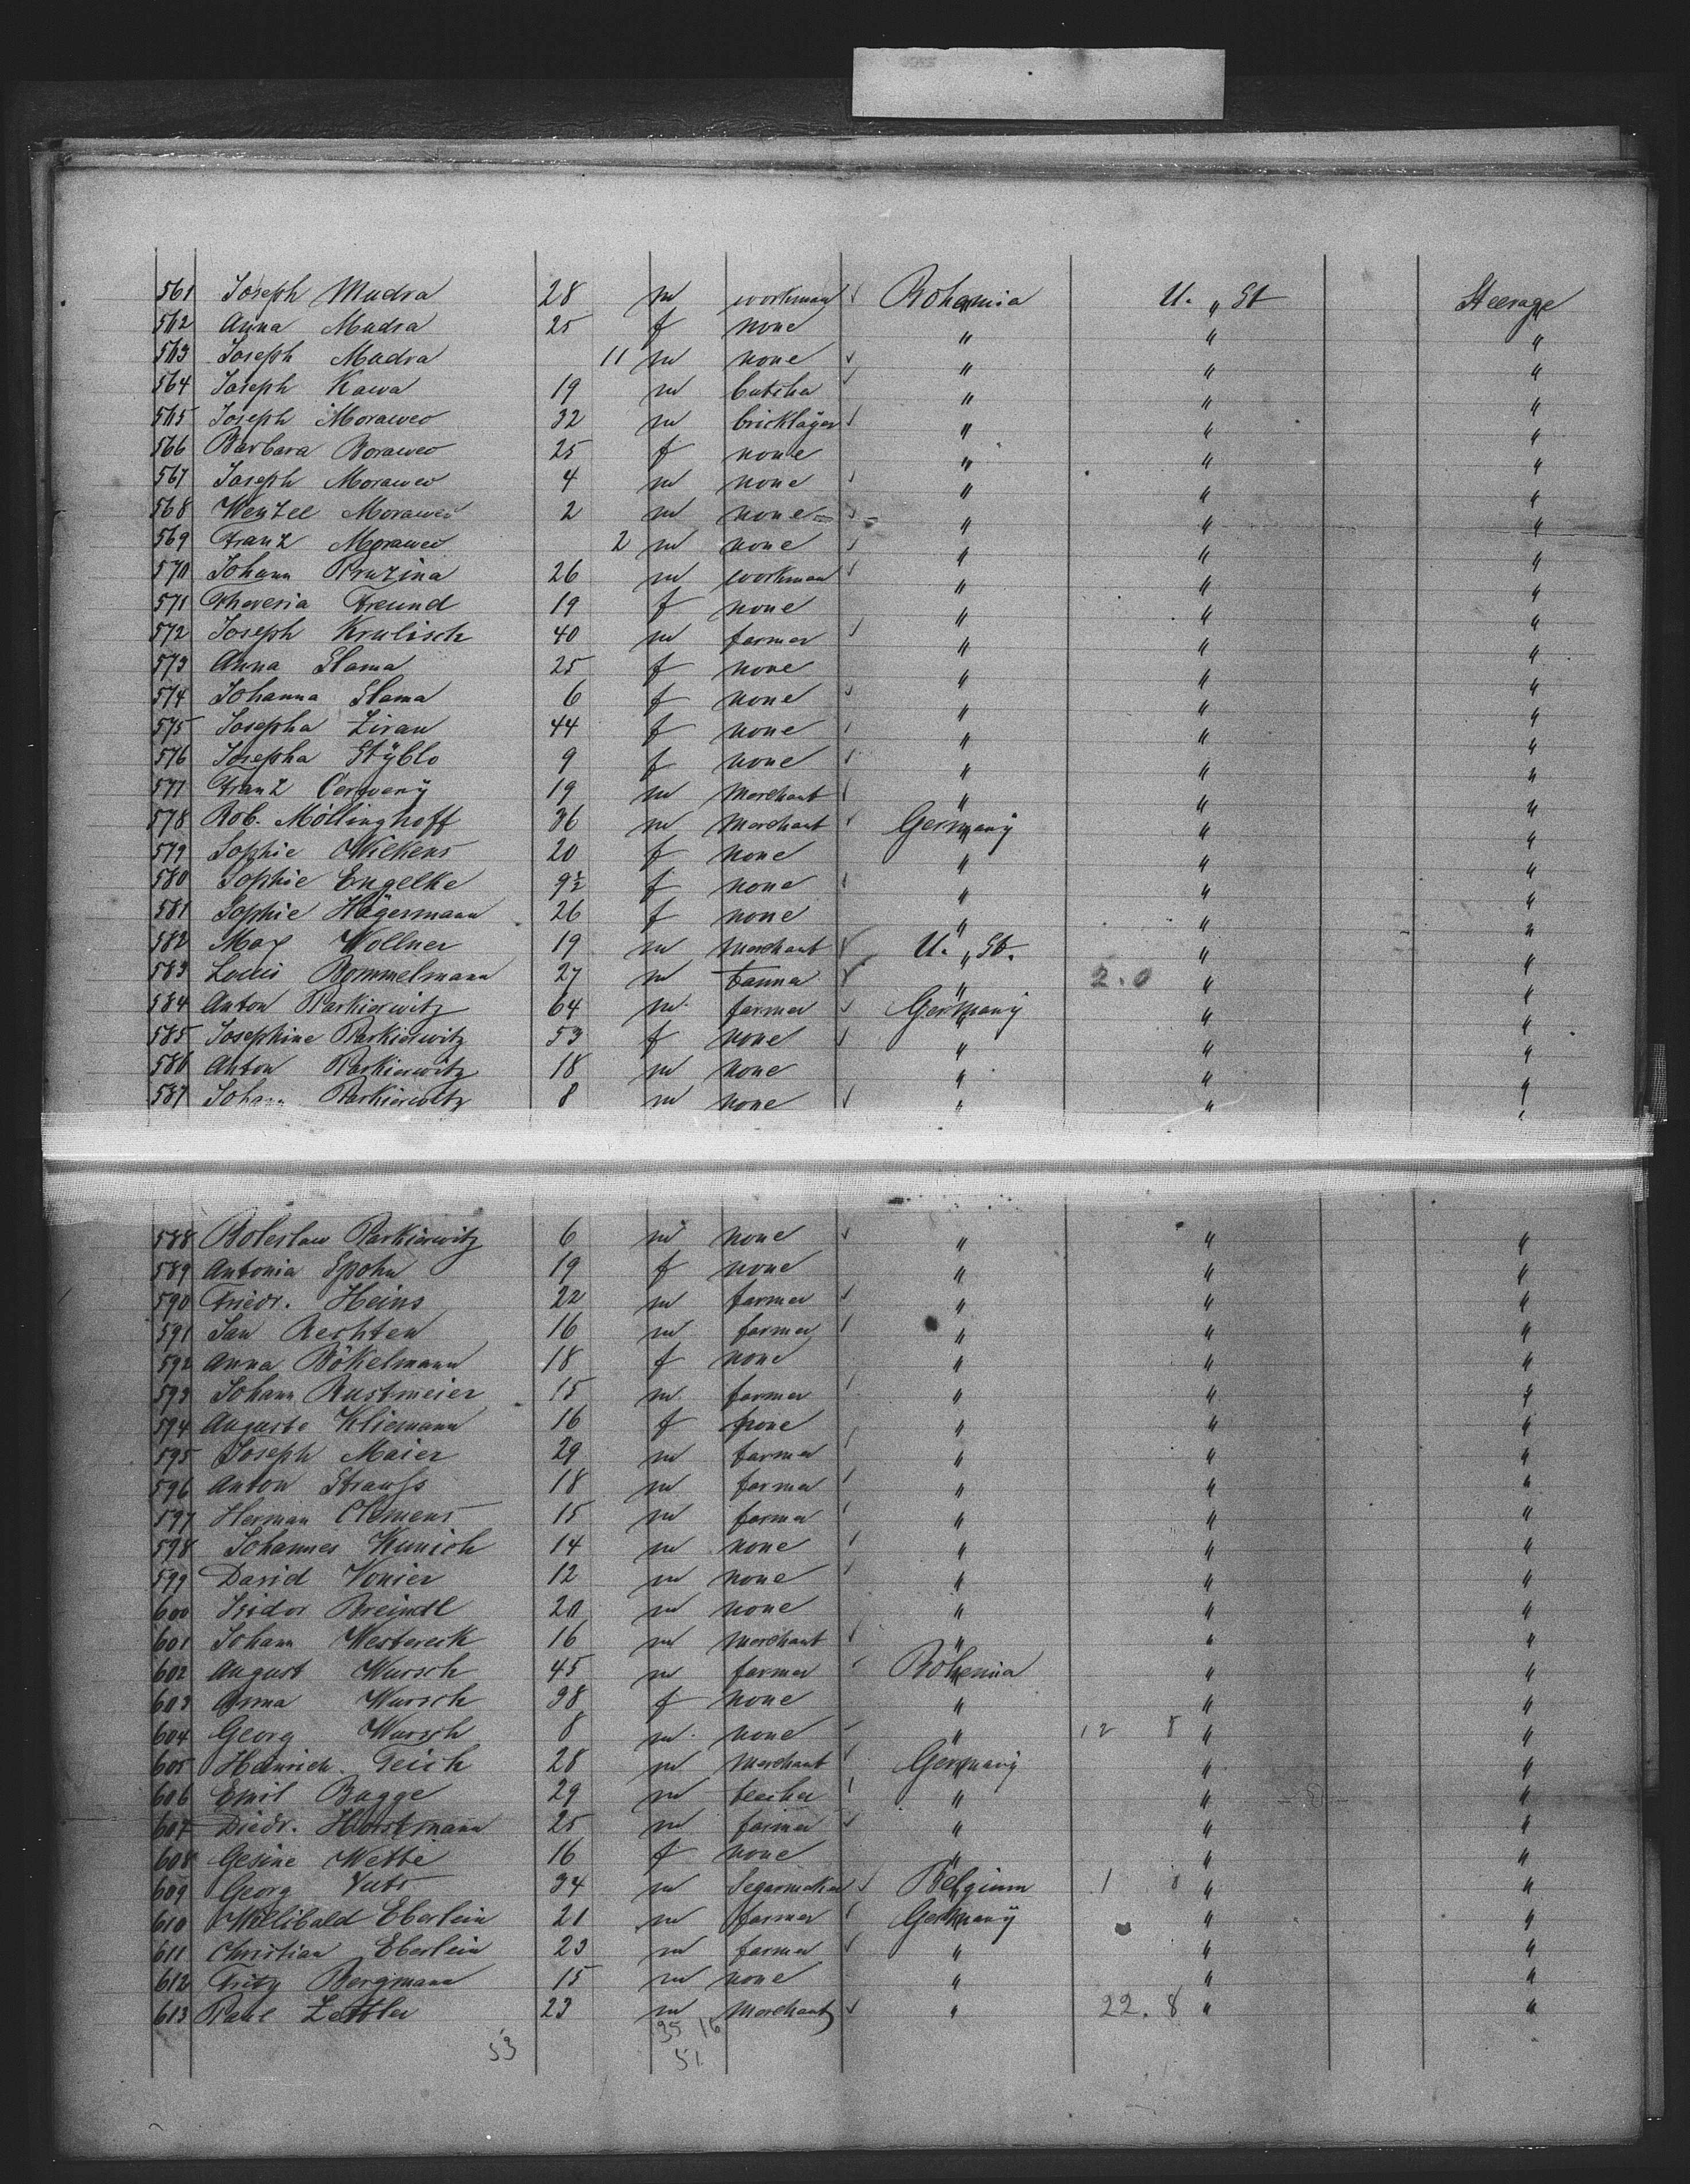 561 Joseph Mudra 28 m workman Bohemia U. St Steerage
562 Anna Mudra 25 f none " " "
563 Joseph Mudra 11 m none " " "
564 Joseph Kawa 19 m butcher " " "
565 Joseph Morawec 32 m bricklayer " " "
566 Barbara Borawec 25 f none " " "
567 Joseph Morawec 4 m none " " "
568 Wenzel Morawec 2 m none " " "
569 Franz Morawec 2 m none " " "
570 Johann Pruzina 26 m workman " " "
571 Theresia Freund 19 f none " " "
572 Joseph Krulisch 40 m farmer " " "
573 Anna Slama 25 f none " " "
574 Johanna Slama 6 f none " " "
575 Josepha Ziran 44 f none " " "
576 Josepha Stÿblo 9 f none " " "
577 Franz Cerweny 19 m Merchant " " "
578 Rob. Möllinghoff 36 m Merchant Germany " "
579 Sophie Wilkens 20 f none " " "
580 Sophie Engelke 9½ f none " " "
581 Sophie Hägermann 26 f none " " "
582 Max Wollner 19 m Merchant U. St. " "
583 Louis Bommelmann 27 m " 2.0 " "
584 Anton Parkierwitz 64 m farmer Germany " "
585 Josephine Parkierwitz 53 f none " " "
586 Anton Parkierwitz 18 m none " " "
587 Johann Parkierwitz 8 m none " " "
588 Boleslaw Parkierwitz 6 m none " " "
589 Antonia Spohn 19 f none " " "
590 Friedr. Heins 22 m farmer " " "
591 Jan Rechten 16 m farmer " " "
592 Anna Bökelmann 18 f none " " "
593 Johann Rustmeier 15 m farmer " " "
594 Auguste Kliemann 16 f none " " "
595 Joseph Maier 29 m farmer " " "
596 Anton Strauss 18 m farmer " " "
597 Herman Clemens 15 m farmer " " "
598 Johannes Kunich 14 m none " " "
599 David Vonier 12 m none " " "
600 Isidor Breindl 20 m none " " "
601 Johann Westereck 16 m merchant " " "
602 August Wursch 45 m farmer Bohemia " "
603 Anna Wursch 38 f none " " "
604 Georg Wursch 8 m none " 12 8 " "
605 Heinrich Teich 28 m Merchant Germany " "
606 Emil Bagge 29 m teacher " " "
607 Diedr. Horstmann 25 m farmer " " "
608 Gesine Wette 16 f none " " "
609 Georg 34 m Segarmaker Belgium 1 8 " "
610 Willibald Eberlein 21 m farmer Germany " "
611 Christian Eberlein 23 m farmer " " "
612 Fritz Bergmann 15 m none " " "
613 Paul Zettler 23 m Merchant " 22.8 " "
53 35 16
51